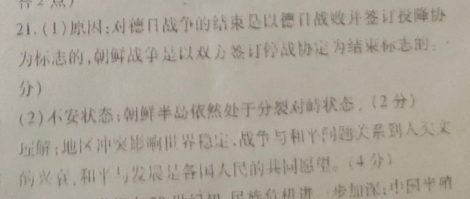 答2点)
21.(1)原因:对德日战争的结束是以德日战败并签订投降协
为标志的,朝鲜战争是以双方签订停战协定为结束标志的。
分)
(2)不安状态:朝鲜半岛依然处于分裂对峙状态。(2分)
理解:地区冲突影响世界稳定,战争与和平问题关系到人类文
的兴衰,和平与发展是各国人民的共同愿望。(4分)
民族危机进一步加深;中国半殖